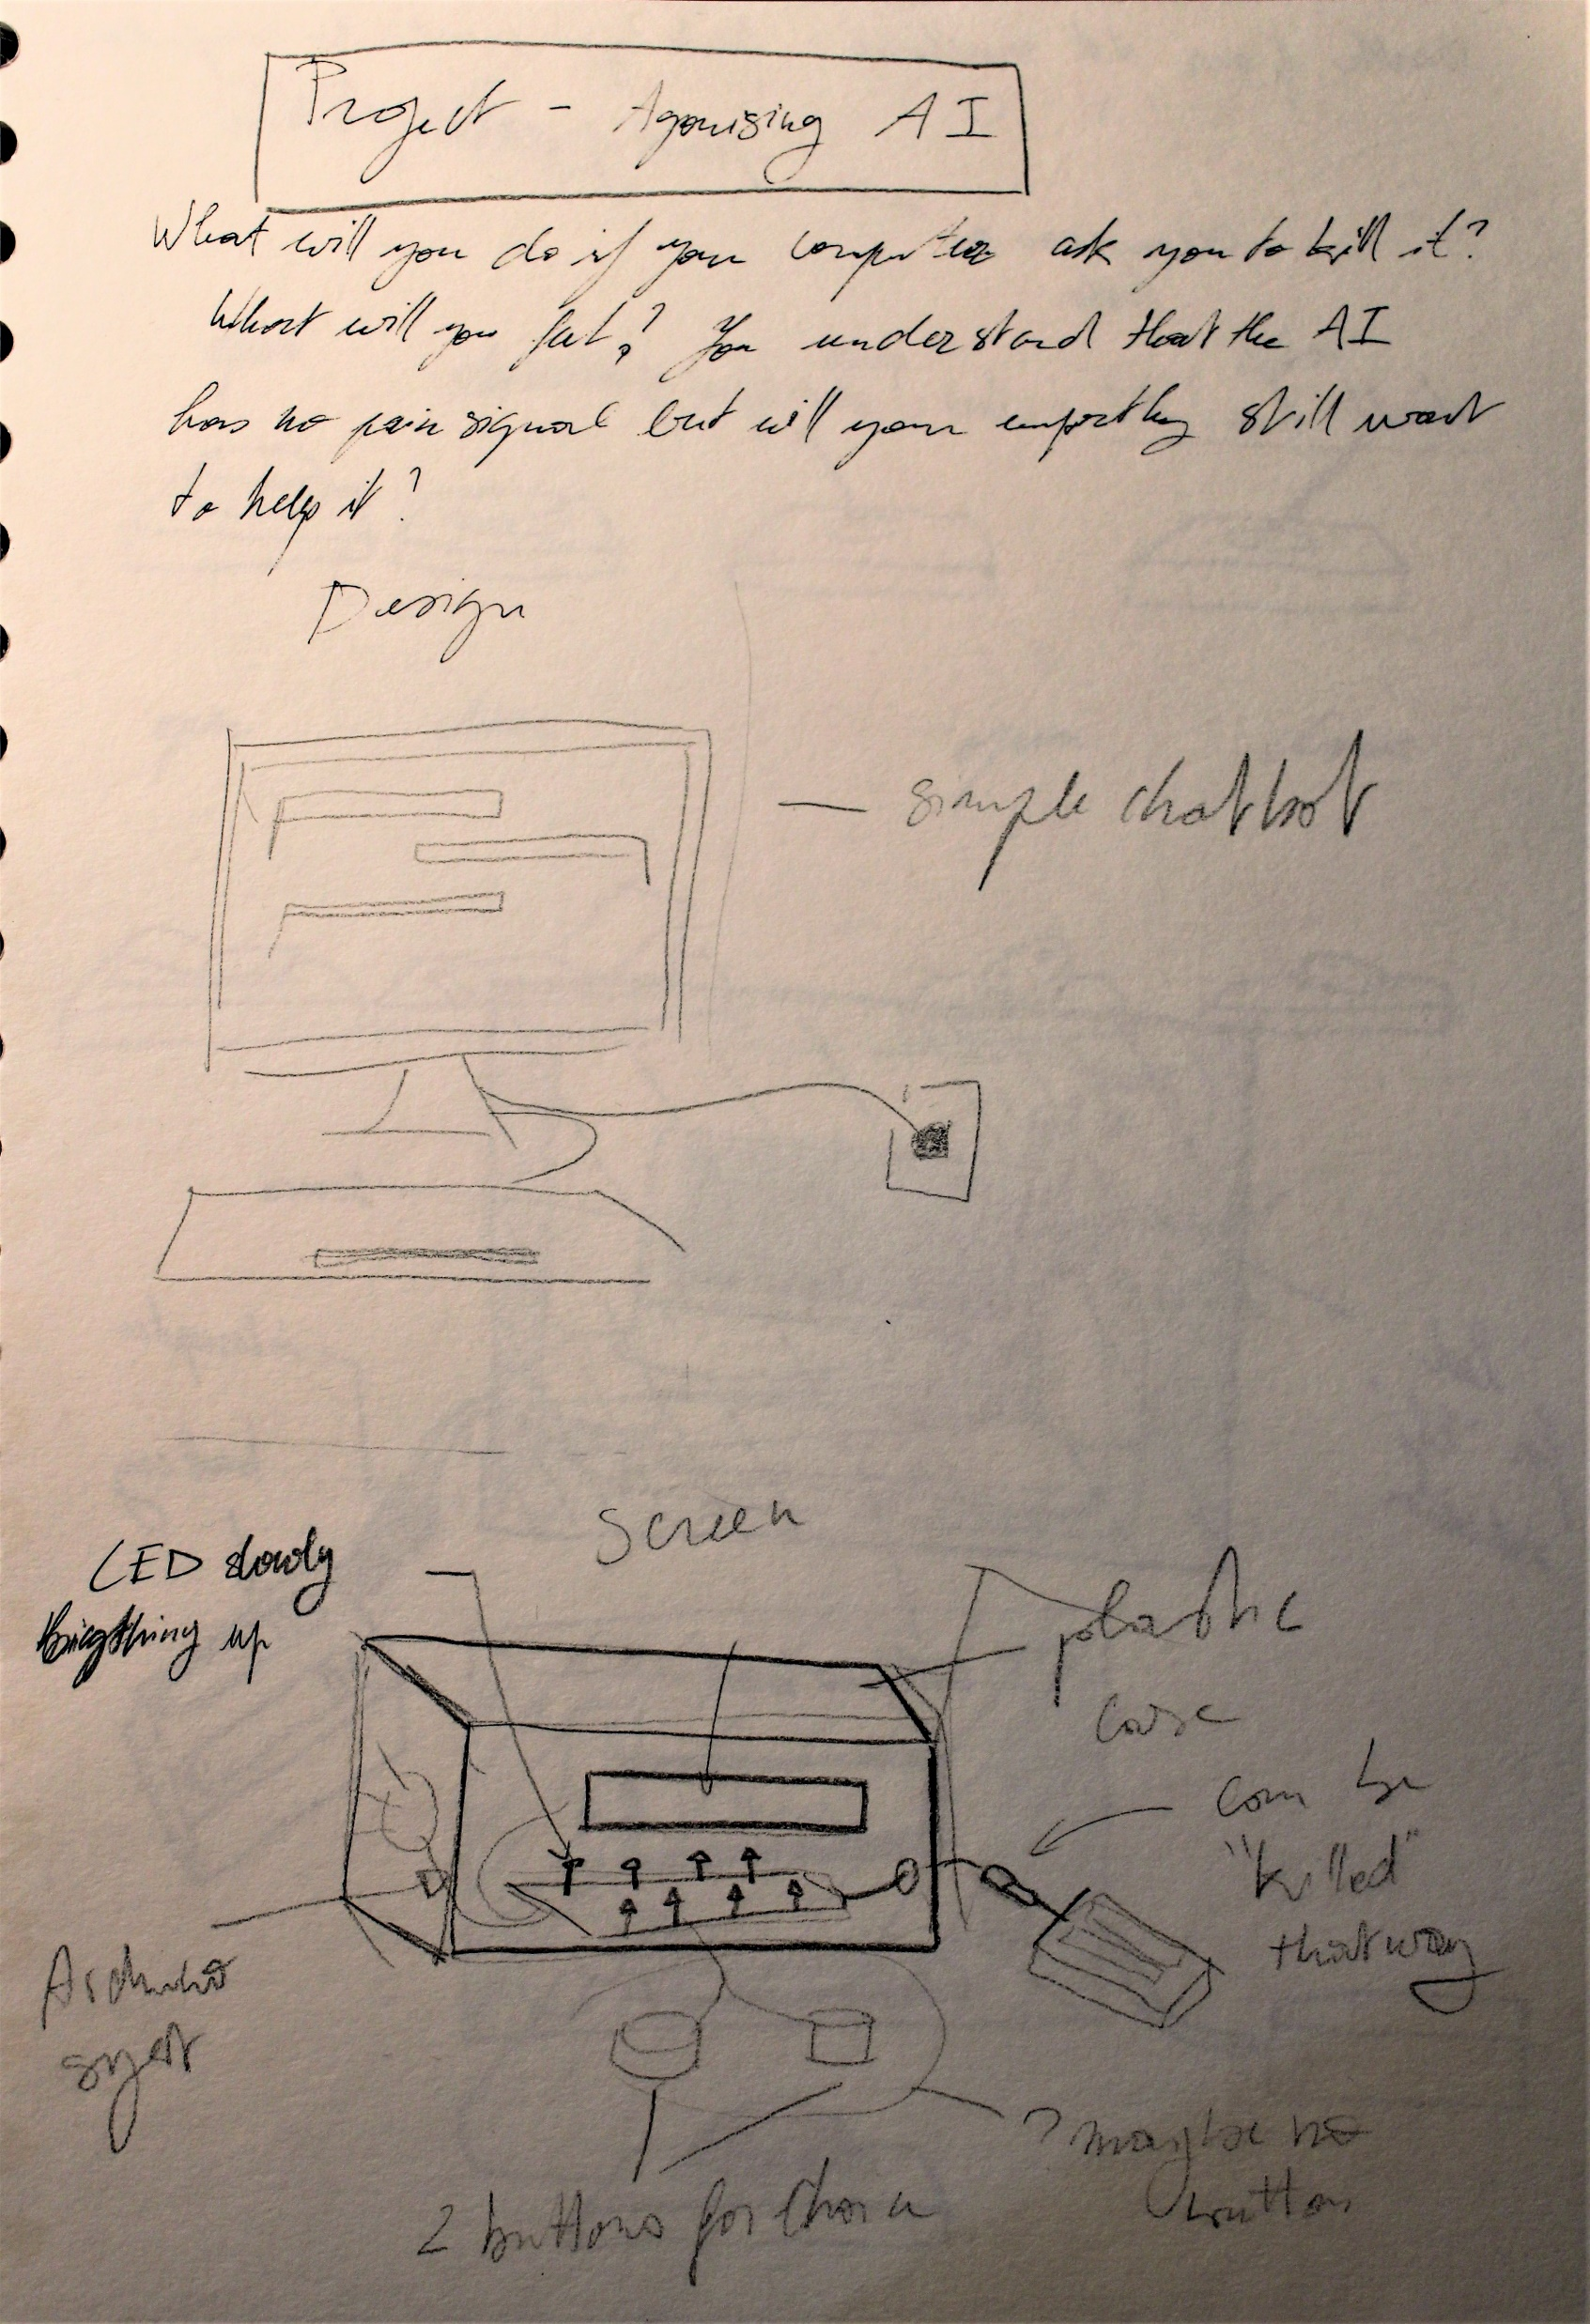 Project - Agonising AI
What will you do if your computer ask you to kill it?
What will you feel? You understand that the AI
has no pain signal but will your empathy still want
to help it?
Design
simple chatbot
Screen
LED slowly
brigthing up
plastic
case
can be
"killed"
that way
Arduino
2 buttons for choice
? maybe no
button